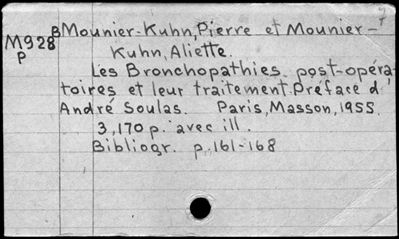 BMounier-Kuhn, Pierre et Mounier-
M928 Kuhn, Aliette.
P
Les Bronchopathies post-opéra-
toires et leur traitement. Préface d'
André Soulas. Paris, Masson, 1955.
3,170 p. avec ill.
Bibliogr. p. 161-168